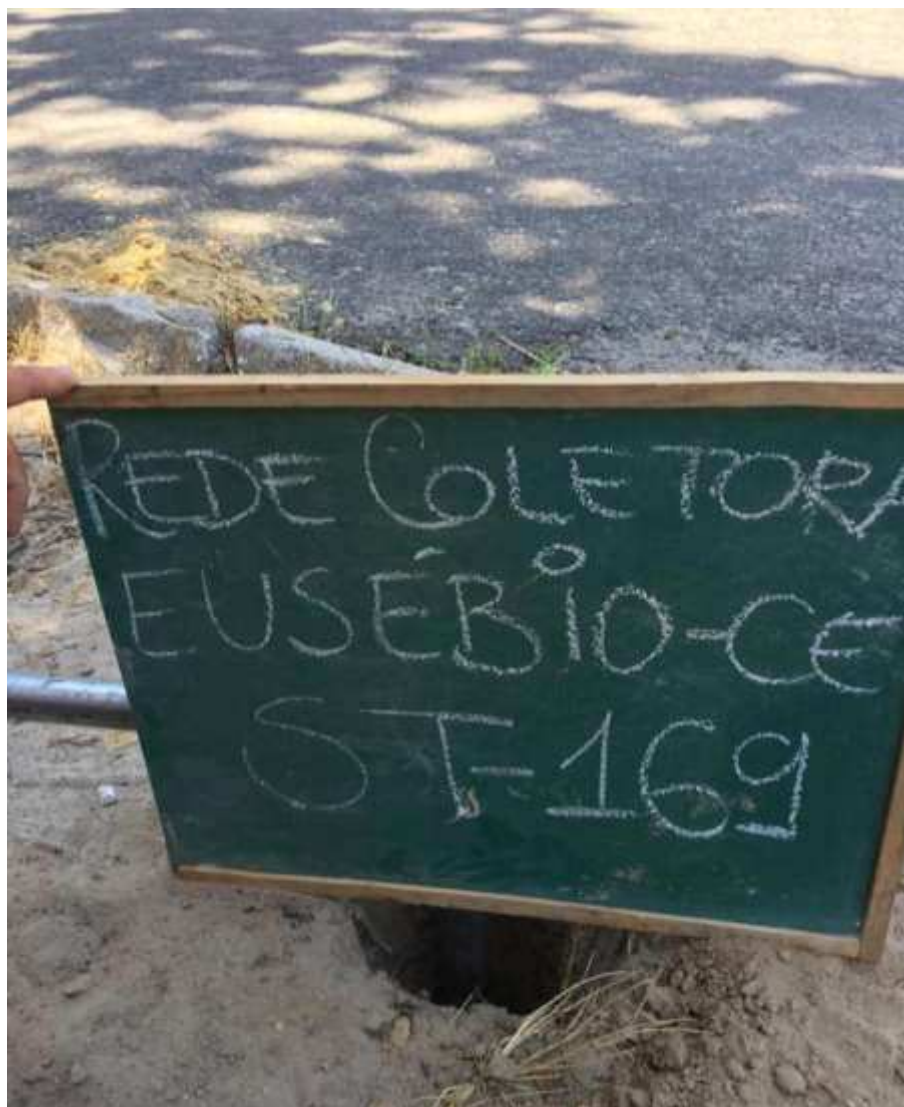 REDE COLETORA
EUSÉBIO-CE
ST-169